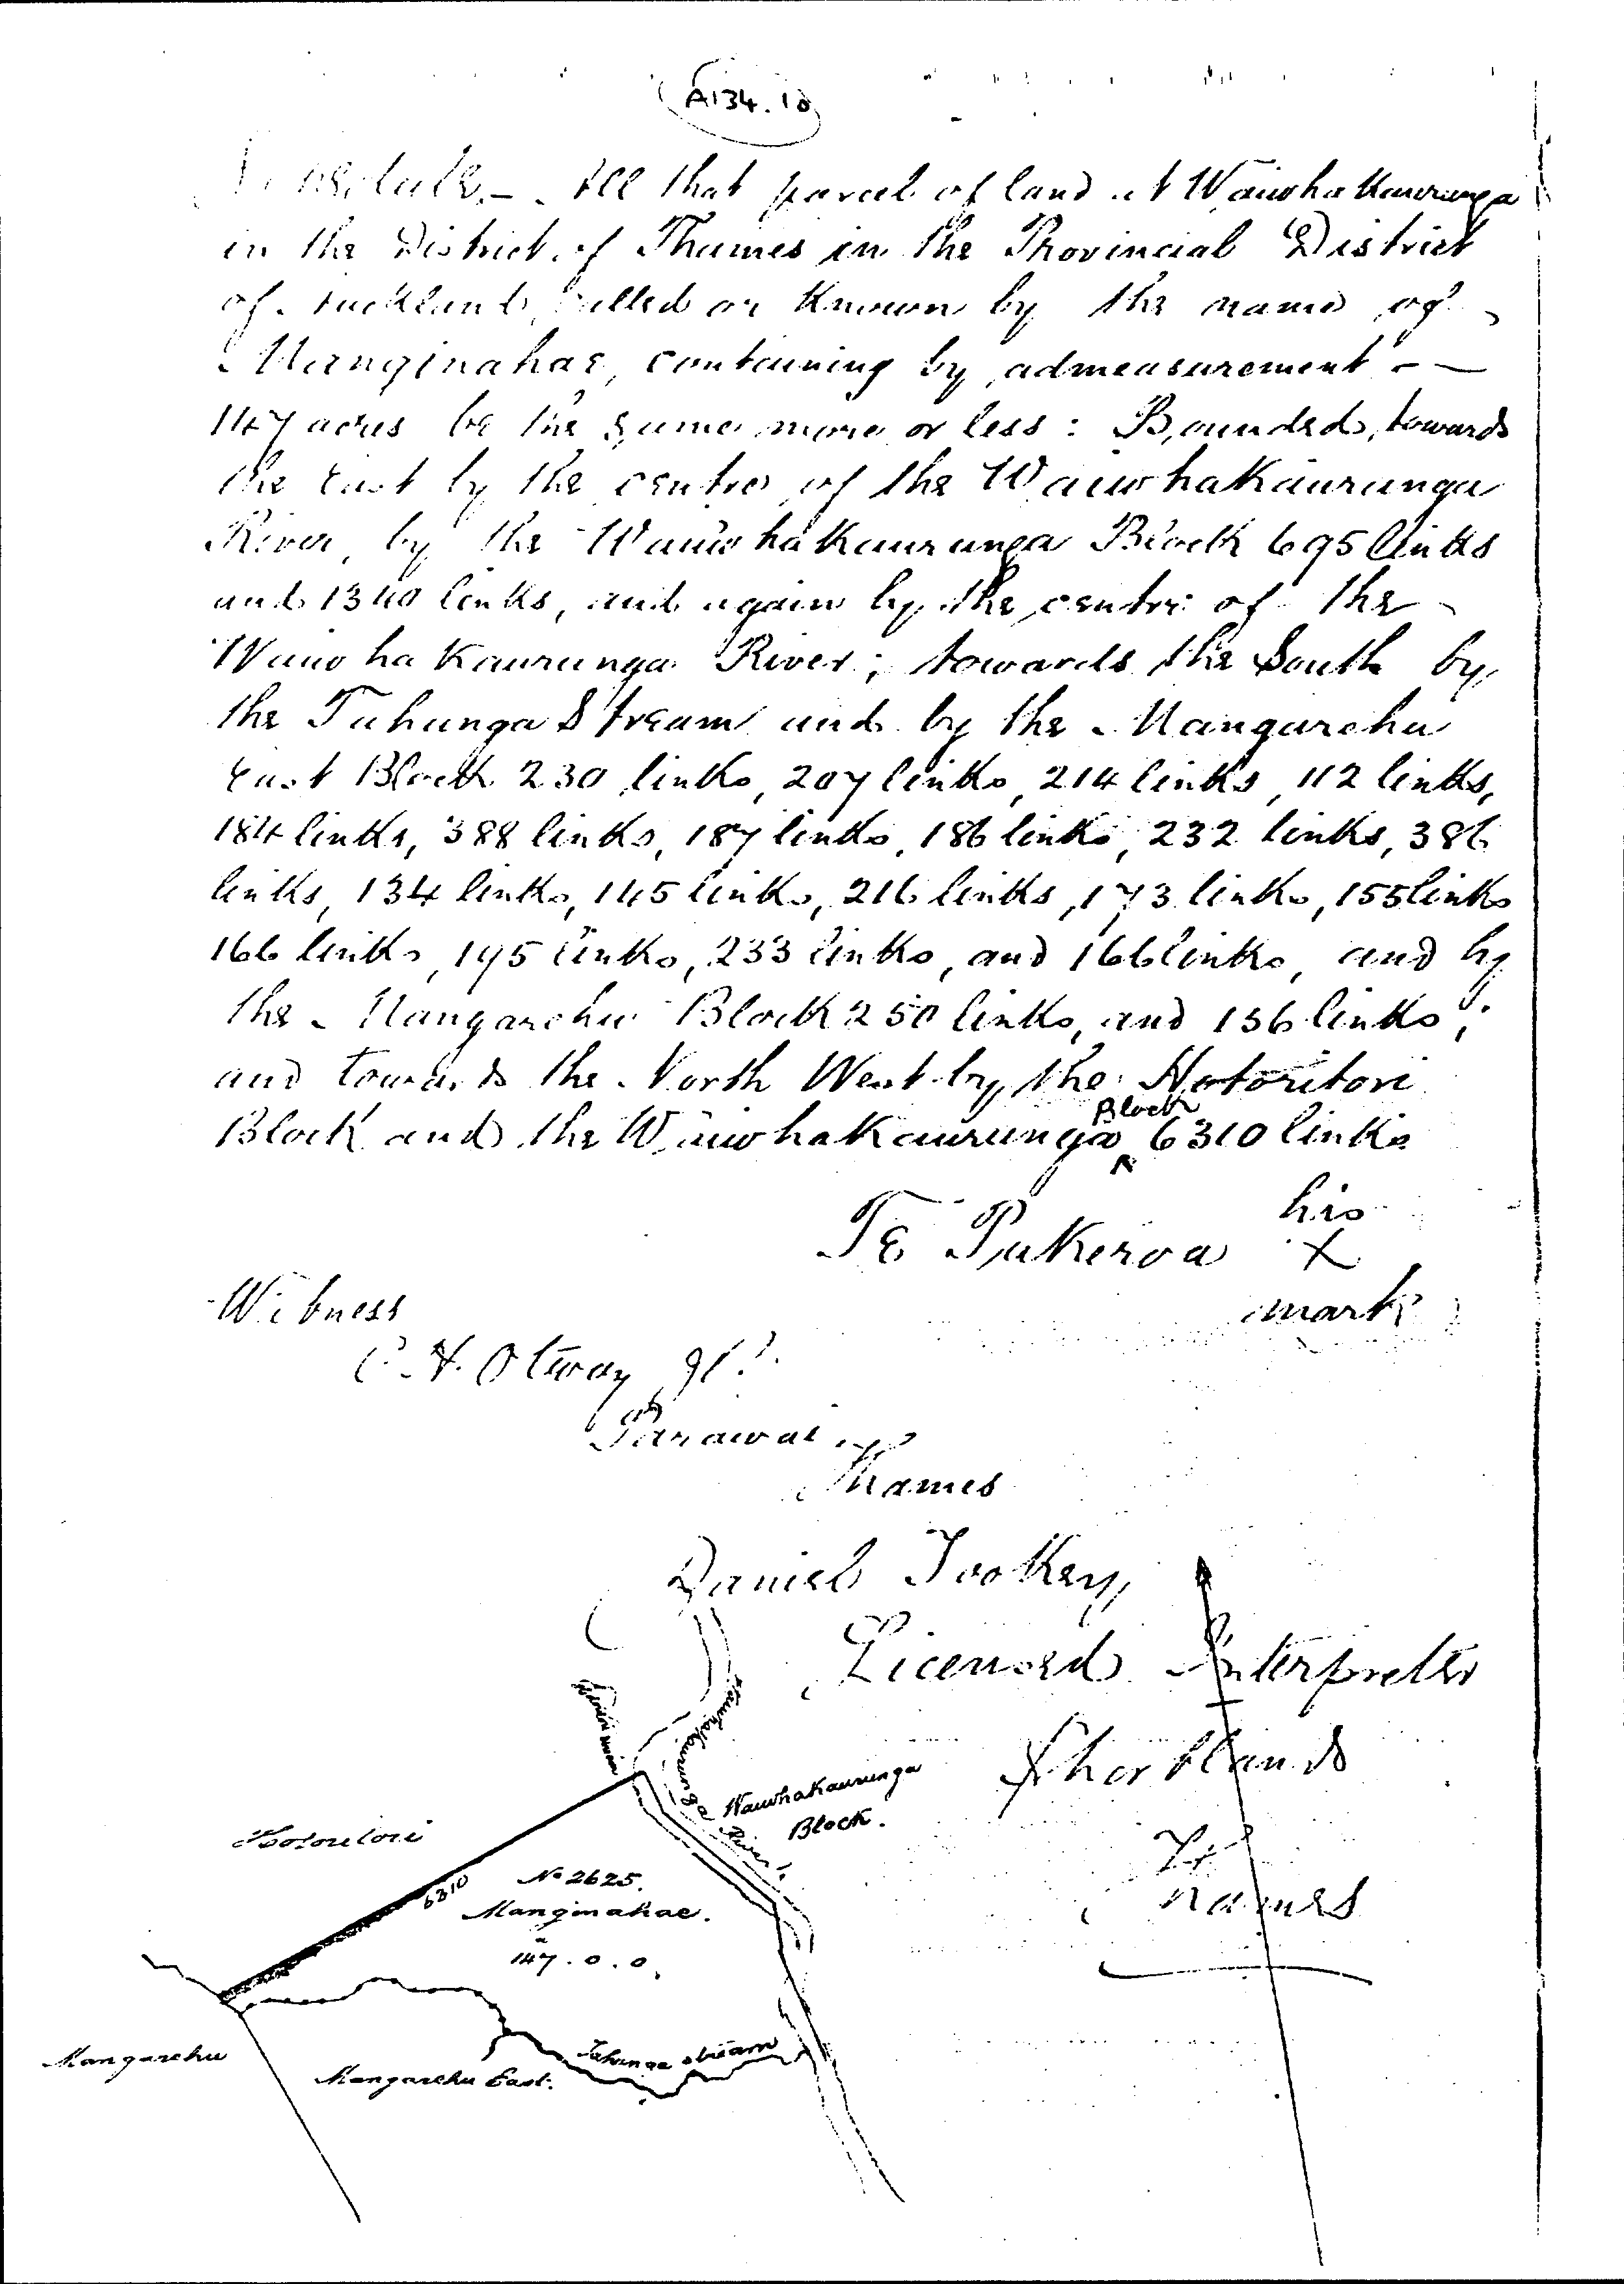 A134.10
All that parcel of land at Wauwhakaurunga
in the District of Thames in the Provincial District
of Auckland called or known by the name of
Manginahae, containing by admeasurement
147 acres be the same more or less: Bounded towards
the East by the centre of the Wauwhakaurunga
River, by the Wauwhakaurunga Block 695 links
and 1340 links, and again by the centre of the
Wauwhakaurunga River; towards the South by
the Tahunga Stream and by the Mangarehu
East Block 230 links, 207 links, 214 links, 112 links,
184 links, 388 links, 187 links, 186 links, 232 links, 386
links, 134 links, 145 links, 216 links, 173 links, 155 links
166 links, 195 links, 233 links, and 166 links, and by
the Mangarehu Block 250 links, and 136 links;
and towards the North West by the Hotoritori
Block and the Wauwhakaurunga Block 6310 links
Te Pukeroa his
X
mark
Witness
C. H. Otway
Parawai
Thames
Daniel Tookey
Licensed Interpreter
Shortland
Thames
Wauwhakaurunga River
Wauwhakaurunga
Block.
Hotoritori
6310
No 2625.
Manginahae.
147 . 0 . 0
Mangarehu
Mangarehu East.
Tahunga Stream